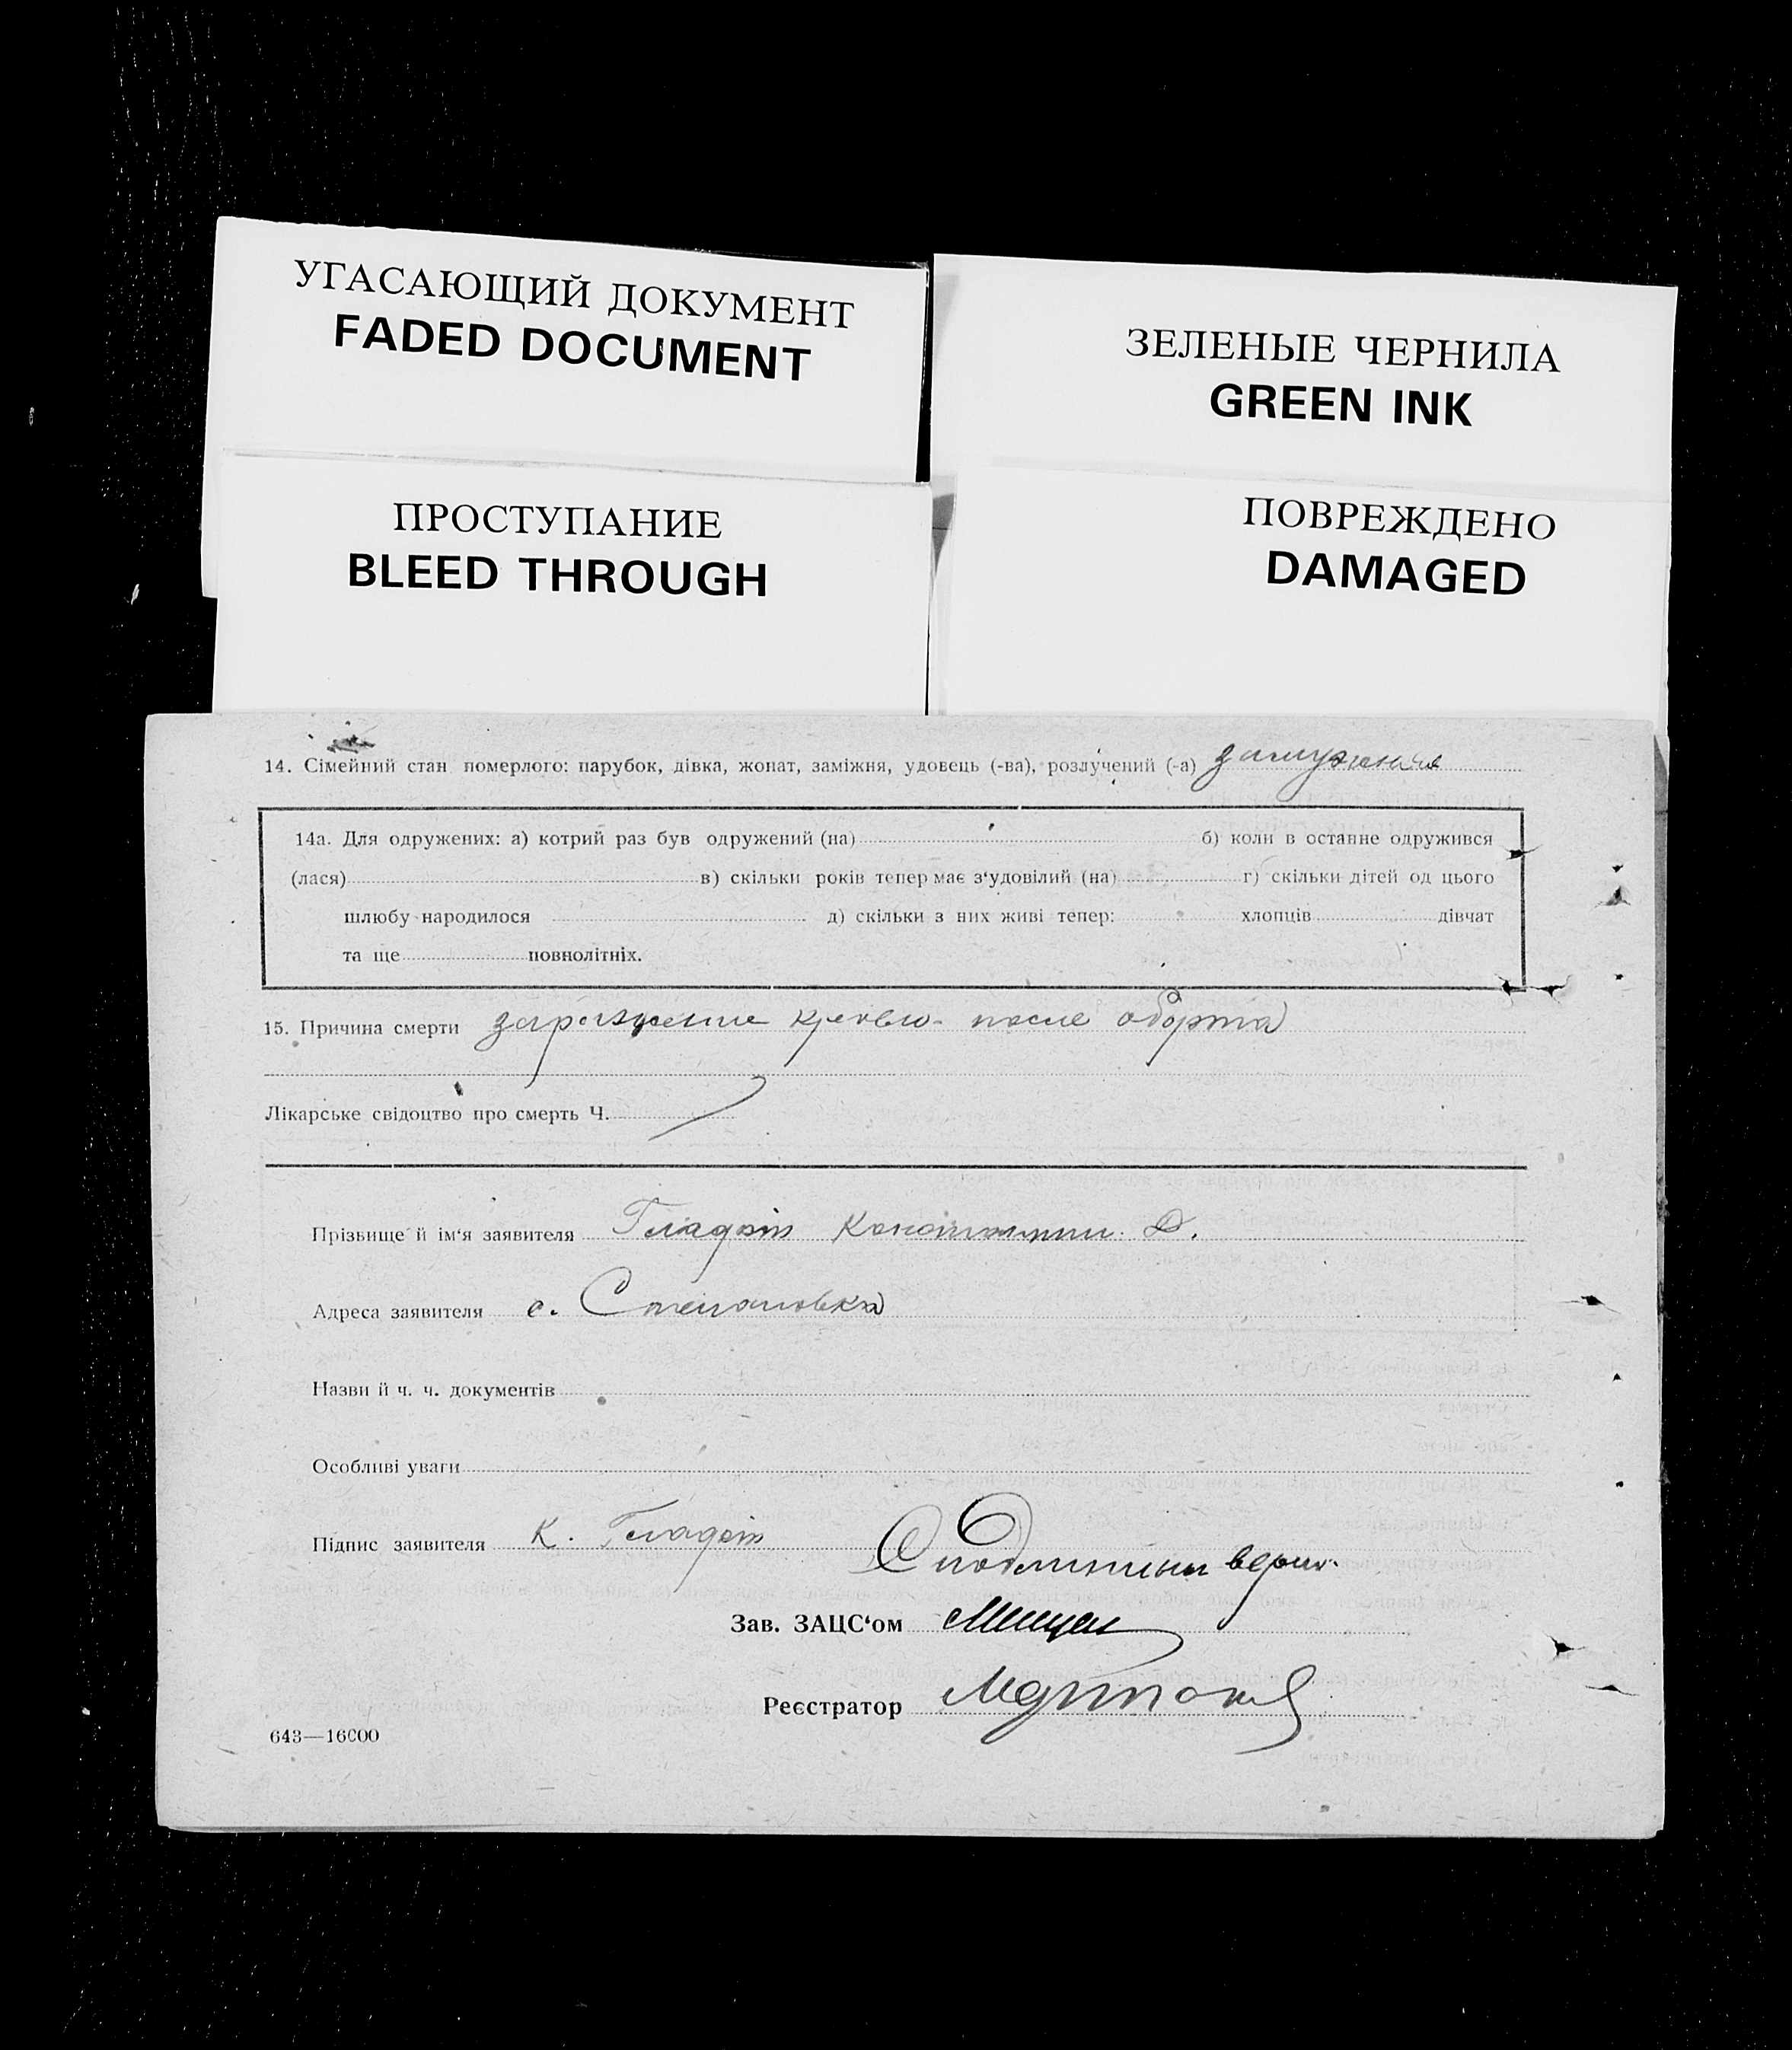 УГАСАЮЩИЙ ДОКУМЕНТ
FADED DOCUMENT
ЗЕЛЕНЫЕ ЧЕРНИЛА
GREEN INK
ПРОСТУПАНИЕ
BLEED THROUGH
ПОВРЕЖДЕНО
DAMAGED
14. Сімейний стан померлого: парубок, дівка, жонат, заміжня, удовець (-ва), розлучений (-а) замужняя
14а. Для одружених: а) котрий раз був одружений (на) б) коли в останнє одружився
(лася) в) скільки років тепер має з‘удовілий (на) г) скільки дітей од цього
шлюбу народилося д) скільки з них живі тепер: хлопців дівчат
та ще повнолітніх.
15. Причина смерти заражение кровью после аборта
Лікарське свідоцтво про смерть Ч.
Прізвище й ім‘я заявителя Константин Д.
Адреса заявителя с. Степановка
Назви й ч. ч. документів
Особливі уваги
Підпис заявителя К.
С подлинным верно
Зав. ЗАЦС‘ом
Реєстратор
643—16000